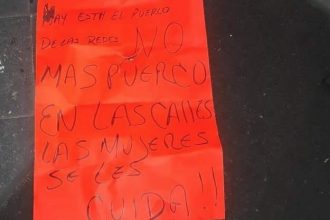 AY ESTA EL PUEBLO
DE LAS REDES NO
MAS PUERCO
EN LAS CALLES
LAS MUJERES
SE LES
CUIDA!!